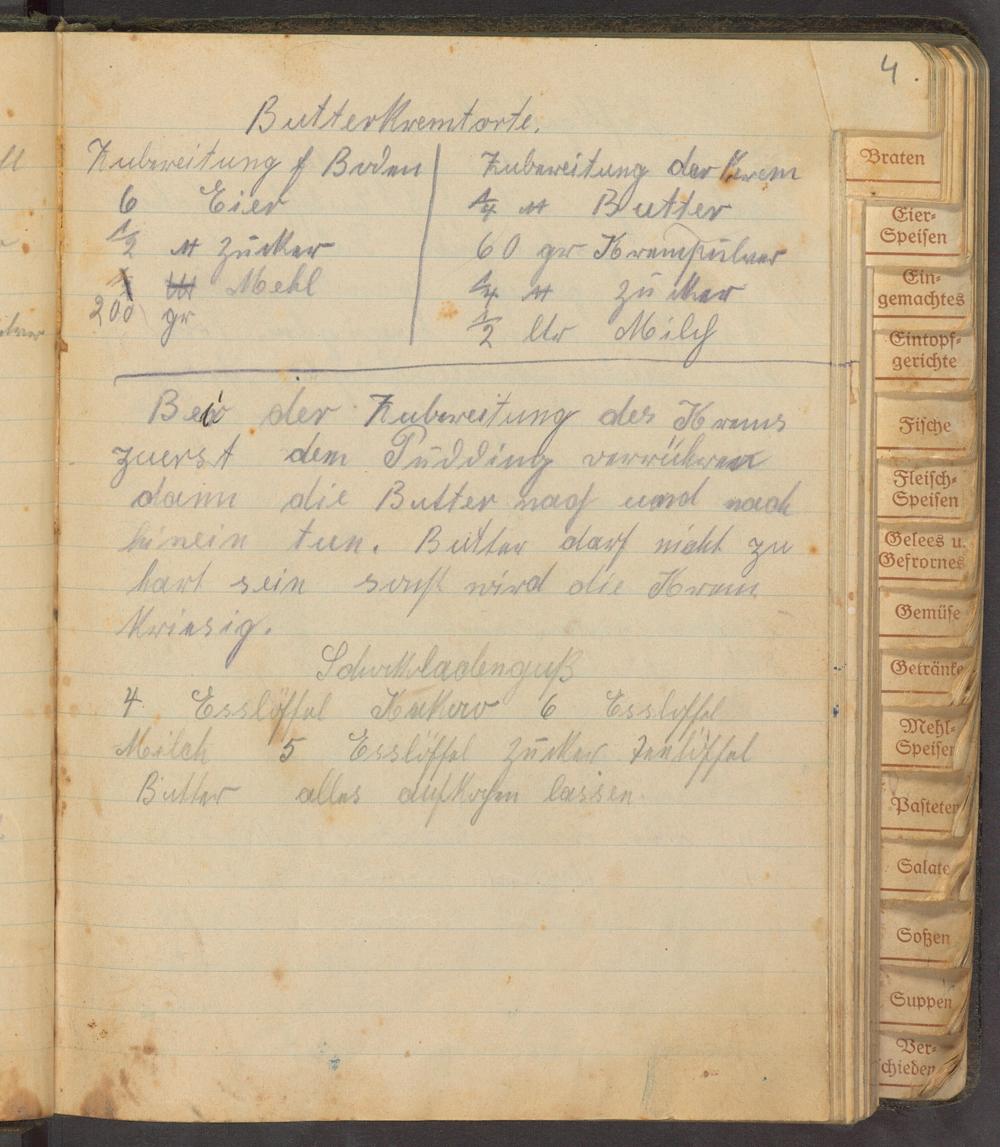 4.
Butterkremtorte.
Zubereitung f Boden
6 Eier
1/2 ℔ Zucker
200 gr Mehl
Zubereitung der Krem
1/4 ℔ Butter
60 gr Krempulver
1/4 ℔ Zucker
1/2 ltr Milch
Bei der Zubereitung des Krems
zuerst dem Pudding verrühren
dann die Butter nach und nach
hinein tun. Butter darf nicht zu
hart sein sonst wird die Krem
kriesig.
Schokoladenguß
4 Esslöffel Kakao 6 Esslöffel
Milch 5 Esslöffel Zucker Teelöffel
Butter alles aufkochen lassen.
Braten
Eier-
Speisen
Ein-
gemachtes
Eintopf-
gerichte
Fische
Fleisch-
Speisen
Gelees u.
Gefrornes
Gemüse
Getränke
Mehl-
Speisen
Pasteten
Salate
Soßen
Suppen
Ver-
schieden